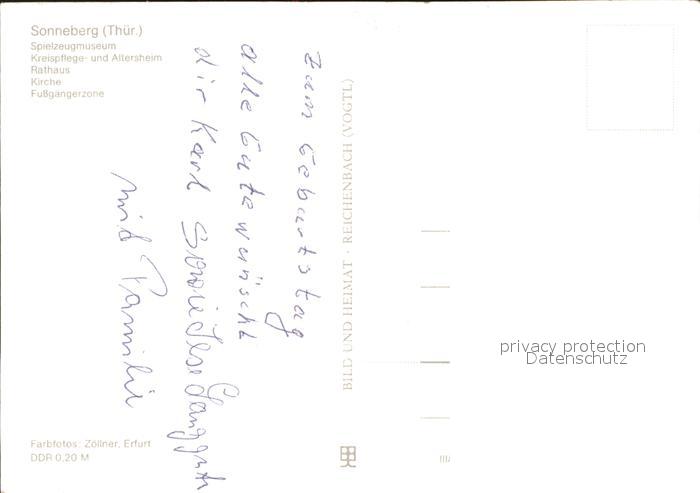 Sonneberg (Thür.)
Spielzeugmuseum
Kreispflege- und Altersheim
Rathaus
Kirche
Fußgängerzone
Zum Geburtstag
alle Gute wünscht
dir Karl Sowie Ilse
mid Familie
BILD UND HEIMAT · REICHENBACH (VOGTL)
privacy protection
Datenschutz
Farbfotos: Zöllner, Erfurt
DDR 0,20 M